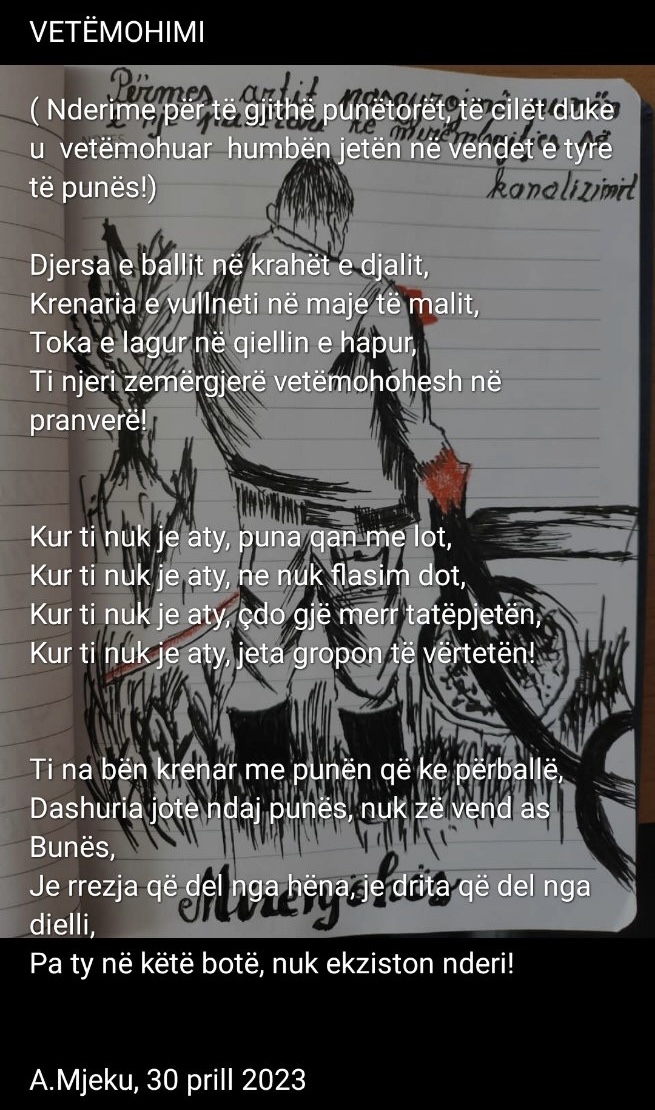 VETËMOHIMI
( Nderime për të gjithë punëtorët, të cilët duke
u vetëmohuar humbën jetën në vendet e tyre
të punës!)
Përmes artit
kanalizimit
Djersa e ballit në krahët e djalit,
Krenaria e vullneti në maje të malit,
Toka e lagur në qiellin e hapur,
Ti njeri zemërgjerë vetëmohohesh në
pranverë!
Kur ti nuk je aty, puna qan me lot,
Kur ti nuk je aty, ne nuk flasim dot,
Kur ti nuk je aty, çdo gjë merr tatëpjetën,
Kur ti nuk je aty, jeta gropon të vërtetën!
Ti na bën krenar me punën që ke përballë,
Dashuria jote ndaj punës, nuk zë vend as
Bunës,
Je rrezja që del nga hëna, je drita që del nga
dielli,
Pa ty në këtë botë, nuk ekziston nderi!
Mirënjohës
A.Mjeku, 30 prill 2023